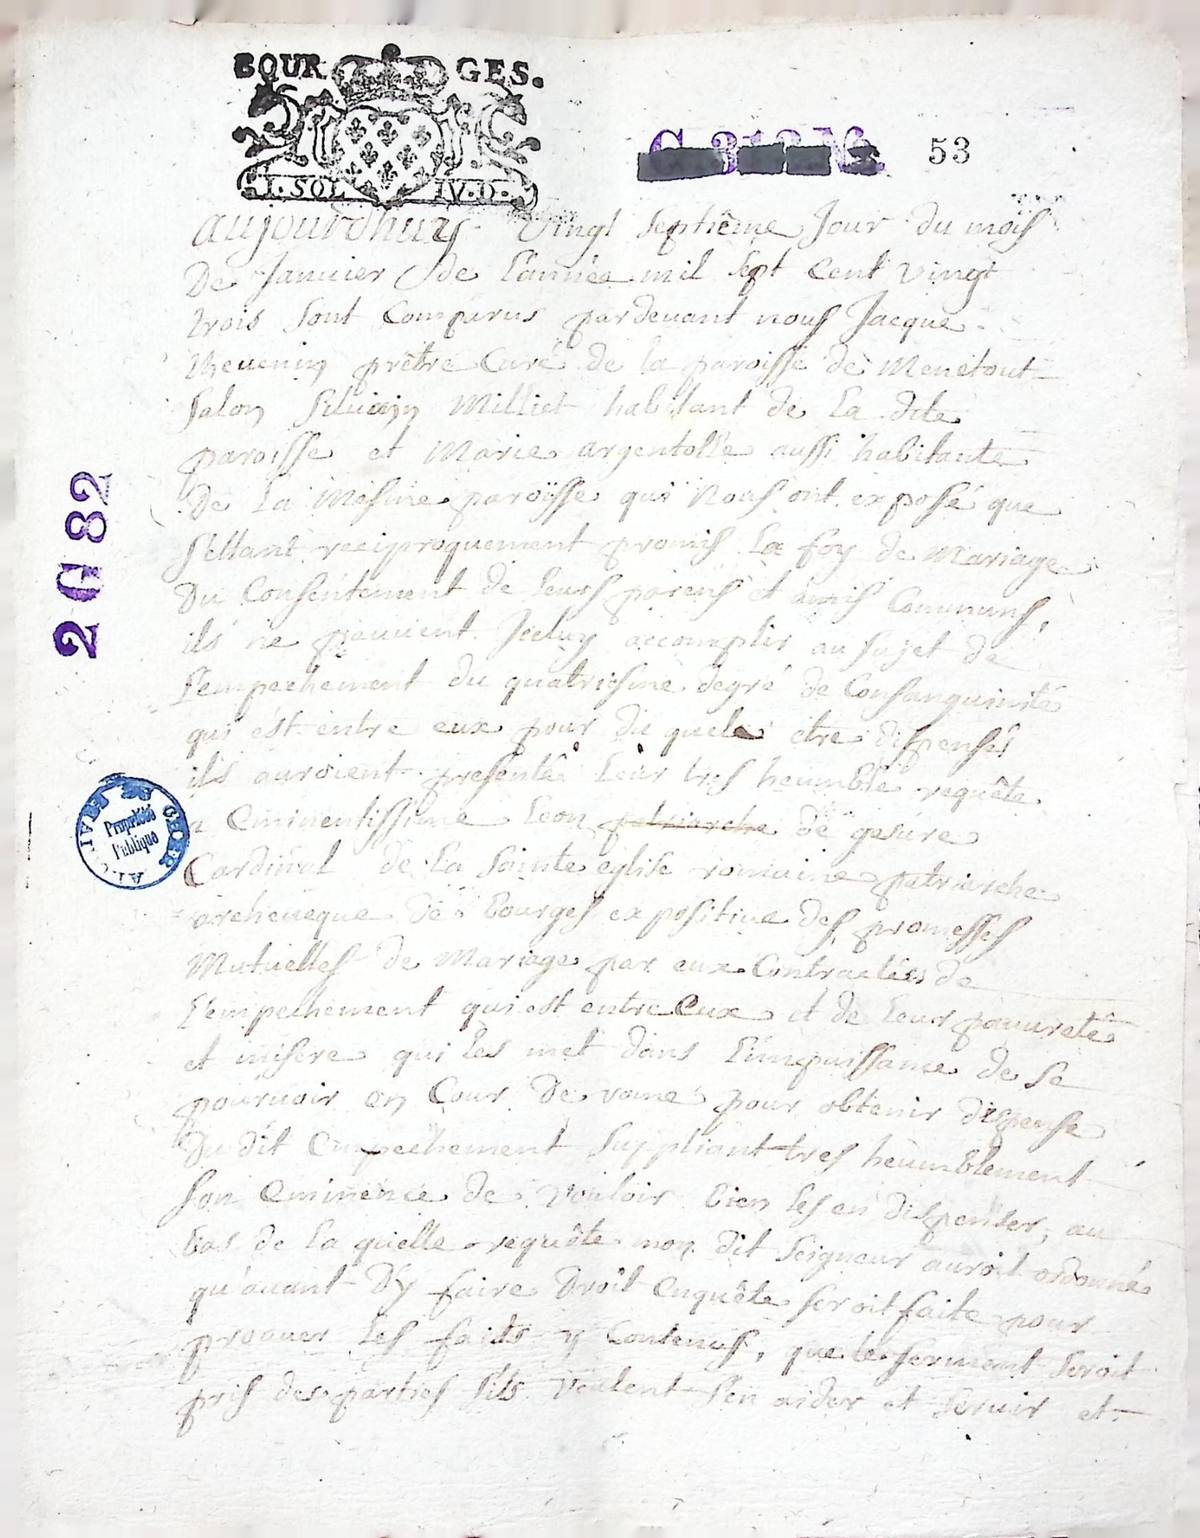 BOURGES.
I. SOL IV. D.
53
aujourdhuy Vingt septiême Jour du mois
De Janvier de L'année mil sept Cent Vingt
trois sont Comparus pardevant nous Jacque
thevenin prêtre Curé de la paroisse de Menetout
Salon Silvain Milliet habitant de La dite
paroisse et Marie argentolle aussi habitante
De La Mesme paroisse qui Nous ont exposé que
s'estant reciproquement promis La foy de Mariage
Du Consentement de leurs parens et amis Communs,
ils ne peuvent Jceluy accomplir au sujet de
l'empechement du quatriesme degré de Consanguinité
qui est entre eux pour du quele etre dispensés
ils auroient presenté Leur tres heumble requête
a Eminentissime Leon patriarche de gesvre
Cardinal de La Sainte eglise romaine patriarche
archeveque De Bourges expositive des promesses
Mutuelles de Mariage par eux Contractées de
L'empechement qui est entre Eux et de Leur pauvreté
et misere qui les met dans L'impuissance de se
pourvoir en Cour De rome pour obtenir dispense
Du dit Empechement suppliant tres heumblement
son Eminence de Vouloir bien les en dispenser, au
bas de La quelle requête mon dit Seigneur auroit ordonné
qu'avant D'y faire Droit Enquête seroit faite pour
prouver les faits y Contenus, que le serment seroit
pris des parties s'ils Veulent s'en aider et servir et
2 G 82
ARCHIVES CHER
Propriété
Publique